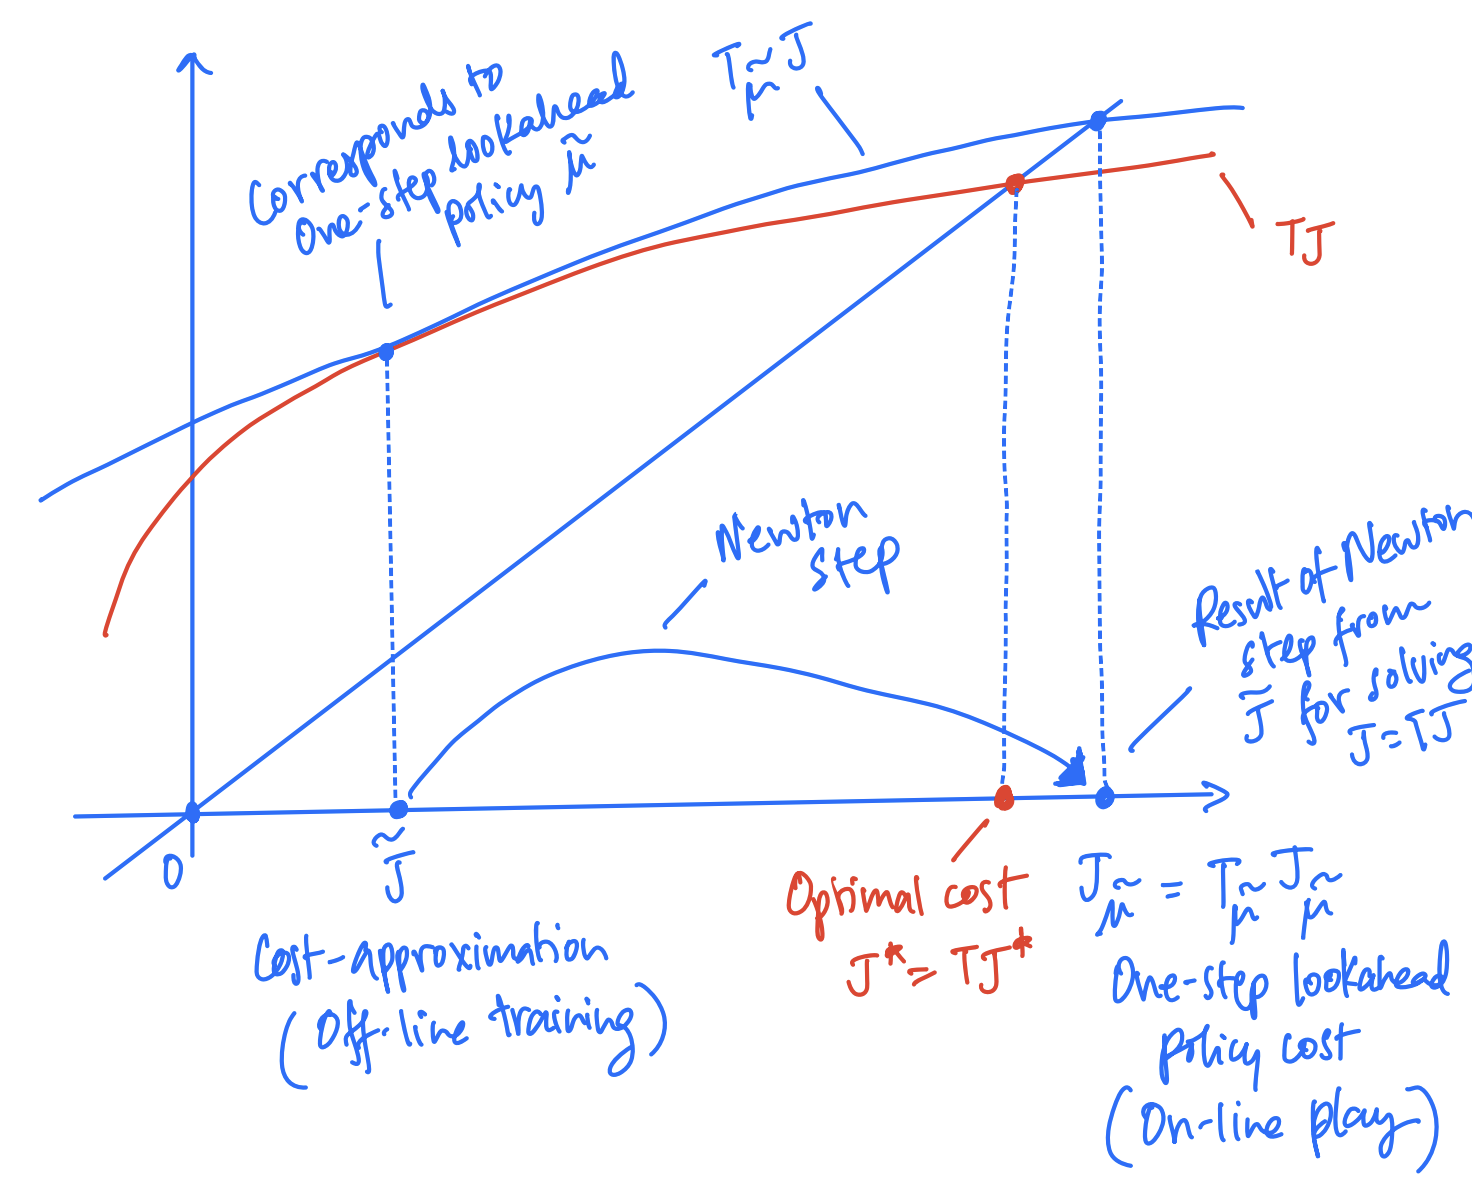 Corresponds to
one-step lookahead
policy μ̃
T_μ̃ J
TJ
Newton
step
Result of Newton
step from
J̃ for solving
J = TJ
0
J̃
Cost-approximation
(Off-line training)
Optimal cost
J* = TJ*
J_μ̃ = T_μ̃ J_μ̃
One-step lookahead
policy cost
(On-line play)